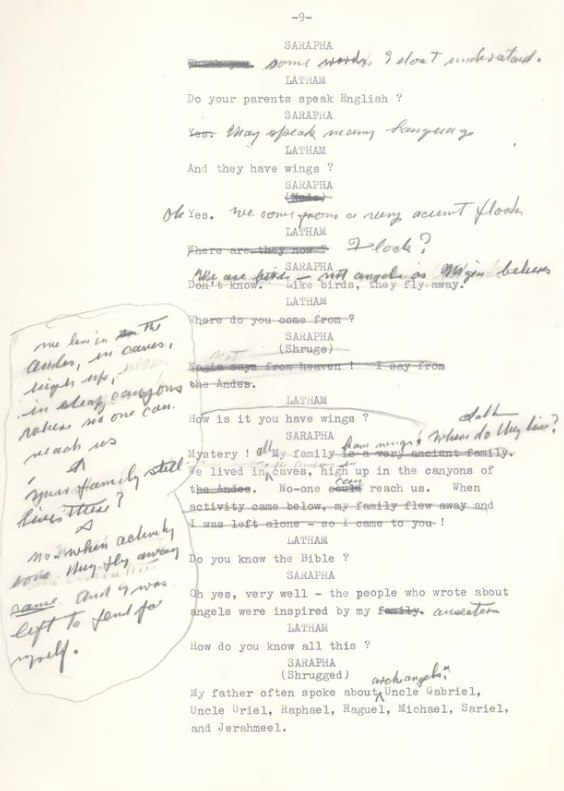 -9-
SARAPHA
some words I don't understand.
LATHAM
Do your parents speak English ?
SARAPHA
Yes. They speak many language
LATHAM
And they have wings ?
SARAPHA
(Nods)
Oh Yes. we come from a very ancient flock
LATHAM
Where are they now ? Flock?
SARAPHA
We are birds - not angels as Magia believes
Don't know. Like birds, they fly away.
LATHAM
Where do you come from ?
SARAPHA
(Shrugs)
Magia says from heaven ! I say from
the Andes.
LATHAM
How is it you have wings ?
SARAPHA
Mystery ! all My family is a very ancient family. have wings! Where do they live?
We lived in caves, high up in the canyons of
the Andes. No-one could can reach us. When
activity came below, my family flew away and
I was left alone - so I came to you !
LATHAM
Do you know the Bible ?
SARAPHA
Oh yes, very well - the people who wrote about
angels were inspired by my family. ancestors
LATHAM
How do you know all this ?
SARAPHA
(Shrugged)
My father often spoke about archangels: Uncle Gabriel,
Uncle Uriel, Raphael, Raguel, Michael, Sariel,
and Jerahmeel.
we live in the
Andes, in caves,
high up,
in steep canyons
where no one can
reach us
your family still
lives there?
no! when activity
come they fly away
and I was
left to fend for
myself.